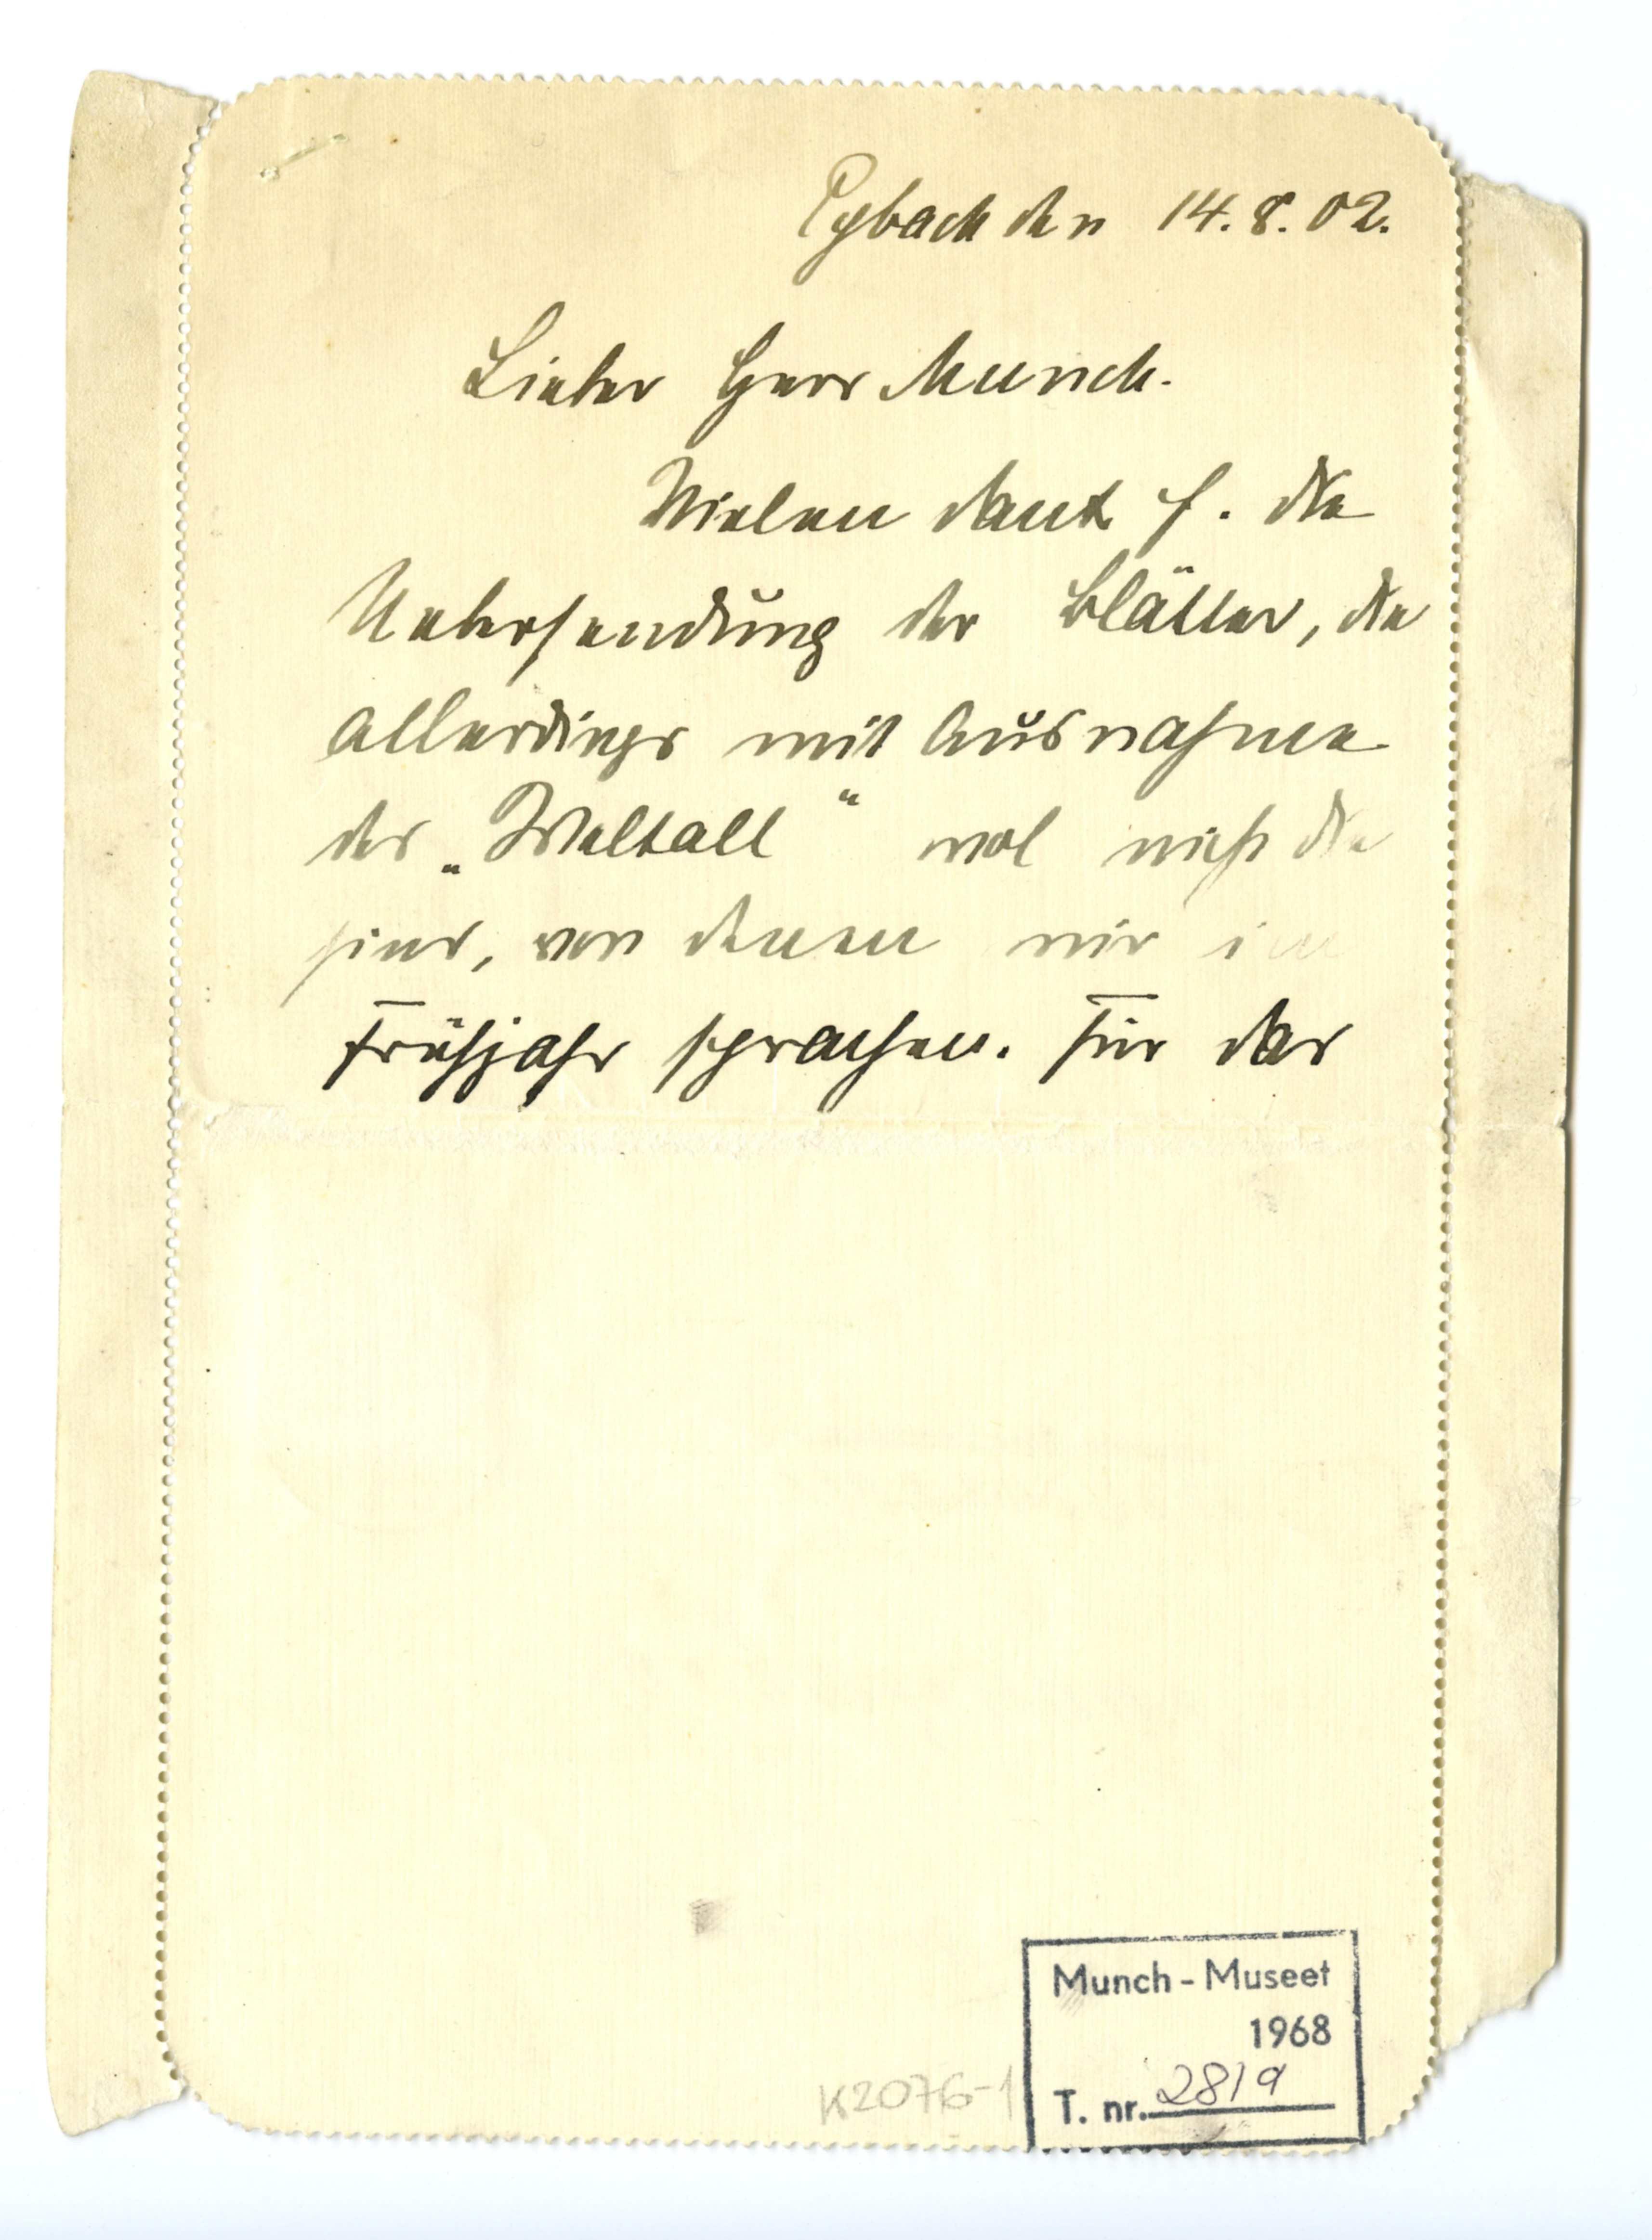 Eybach den 14.8.02.
Lieber Herr Munch.
Vielen dank f. die
Uebersendung der Blätter, die
allerdings mit Ausnahme
des „Weltall“ wol nicht die
sind, von denen wir im
Frühjahr sprachen. Für das
Munch-Museet
1968
T. nr. 2819
K2076-1